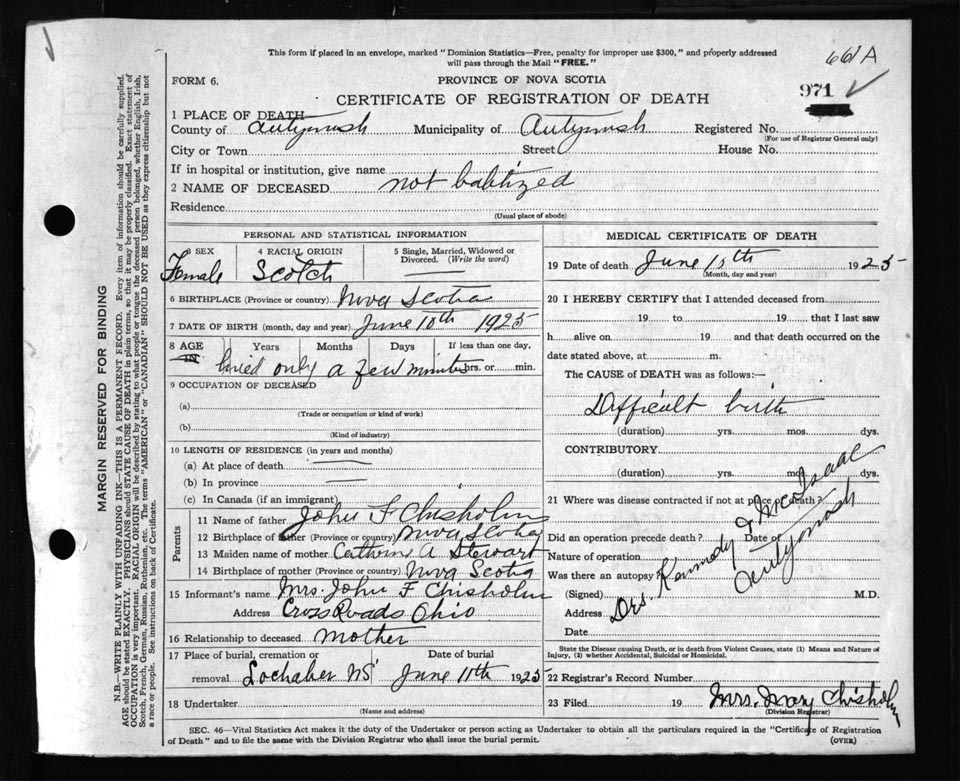 This form if placed in an envelope, marked "Dominion Statistics—Free, penalty for improper use $300," and properly addressed
will pass through the Mail "FREE."
661A
FORM 6.
PROVINCE OF NOVA SCOTIA
971
CERTIFICATE OF REGISTRATION OF DEATH
1 PLACE OF DEATH—
County of Antigonish Municipality of Antigonish Registered No.
(For use of Registrar General only)
City or Town Street House No.
If in hospital or institution, give name
2 NAME OF DECEASED not babtized
Residence
(Usual place of abode)
PERSONAL AND STATISTICAL INFORMATION
3 SEX 4 RACIAL ORIGIN 5 Single, Married, Widowed or
Divorced. (Write the word)
Female Scotch
6 BIRTHPLACE (Province or country) Nova Scotia
7 DATE OF BIRTH (month, day and year) June 10th 1925
8 AGE Years Months Days If less than one day,
lived only a few minutes hrs. or min.
9 OCCUPATION OF DECEASED
(a)
(Trade or occupation or kind of work)
(b)
(Kind of industry)
10 LENGTH OF RESIDENCE (in years and months)
(a) At place of death
(b) In province
(c) In Canada (if an immigrant)
Parents
11 Name of father John F Chisholm
12 Birthplace of father (Province or country) Nova Scotia
13 Maiden name of mother A Stewart
14 Birthplace of mother (Province or country) Nova Scotia
15 Informant's name Mrs. John F Chisholm
Address Cross Roads Ohio
16 Relationship to deceased mother
17 Place of burial, cremation or Date of burial
removal Lochaber NS June 11th 1925
18 Undertaker
(Name and address)
MEDICAL CERTIFICATE OF DEATH
19 Date of death June 1925
(Month, day and year)
20 I HEREBY CERTIFY that I attended deceased from
19 to 19 that I last saw
h alive on 19 and that death occurred on the
date stated above, at m.
The CAUSE OF DEATH was as follows:—
Difficult birth
(duration) yrs. mos. dys.
CONTRIBUTORY
(duration) yrs. mos. dys.
21 Where was disease contracted if not at place of death?
Did an operation precede death? Date of
Nature of operation
Was there an autopsy?
(Signed) M.D.
Address
Date
Drs. Kennedy & McIsaac
Antigonish
State the Disease causing Death, or in death from Violent Causes, state (1) Means and Nature of
Injury, (2) whether Accidental, Suicidal or Homicidal.
22 Registrar's Record Number
23 Filed 19 Mrs. Mary Chisholm
(Division Registrar)
SEC. 46—Vital Statistics Act makes it the duty of the Undertaker or person acting as Undertaker to obtain all the particulars required in the "Certificate of Registration
of Death" and to file the same with the Division Registrar who shall issue the burial permit.
(OVER)
MARGIN RESERVED FOR BINDING
N.B.—WRITE PLAINLY WITH UNFADING INK—THIS IS A PERMANENT RECORD. Every item of information should be carefully supplied.
AGE should be stated EXACTLY. PHYSICIANS should STATE CAUSE OF DEATH in plain terms, so that it may be properly classified. Exact statement of
OCCUPATION is very important. RACIAL ORIGIN will be described by stating to what people or tongue the deceased person belonged, whether English, Irish,
Scotch, French, German, Russian, Ruthenian, etc. The terms "AMERICAN" or "CANADIAN" SHOULD NOT BE USED as they express citizenship but not
a race or people. See instructions on back of Certificate.